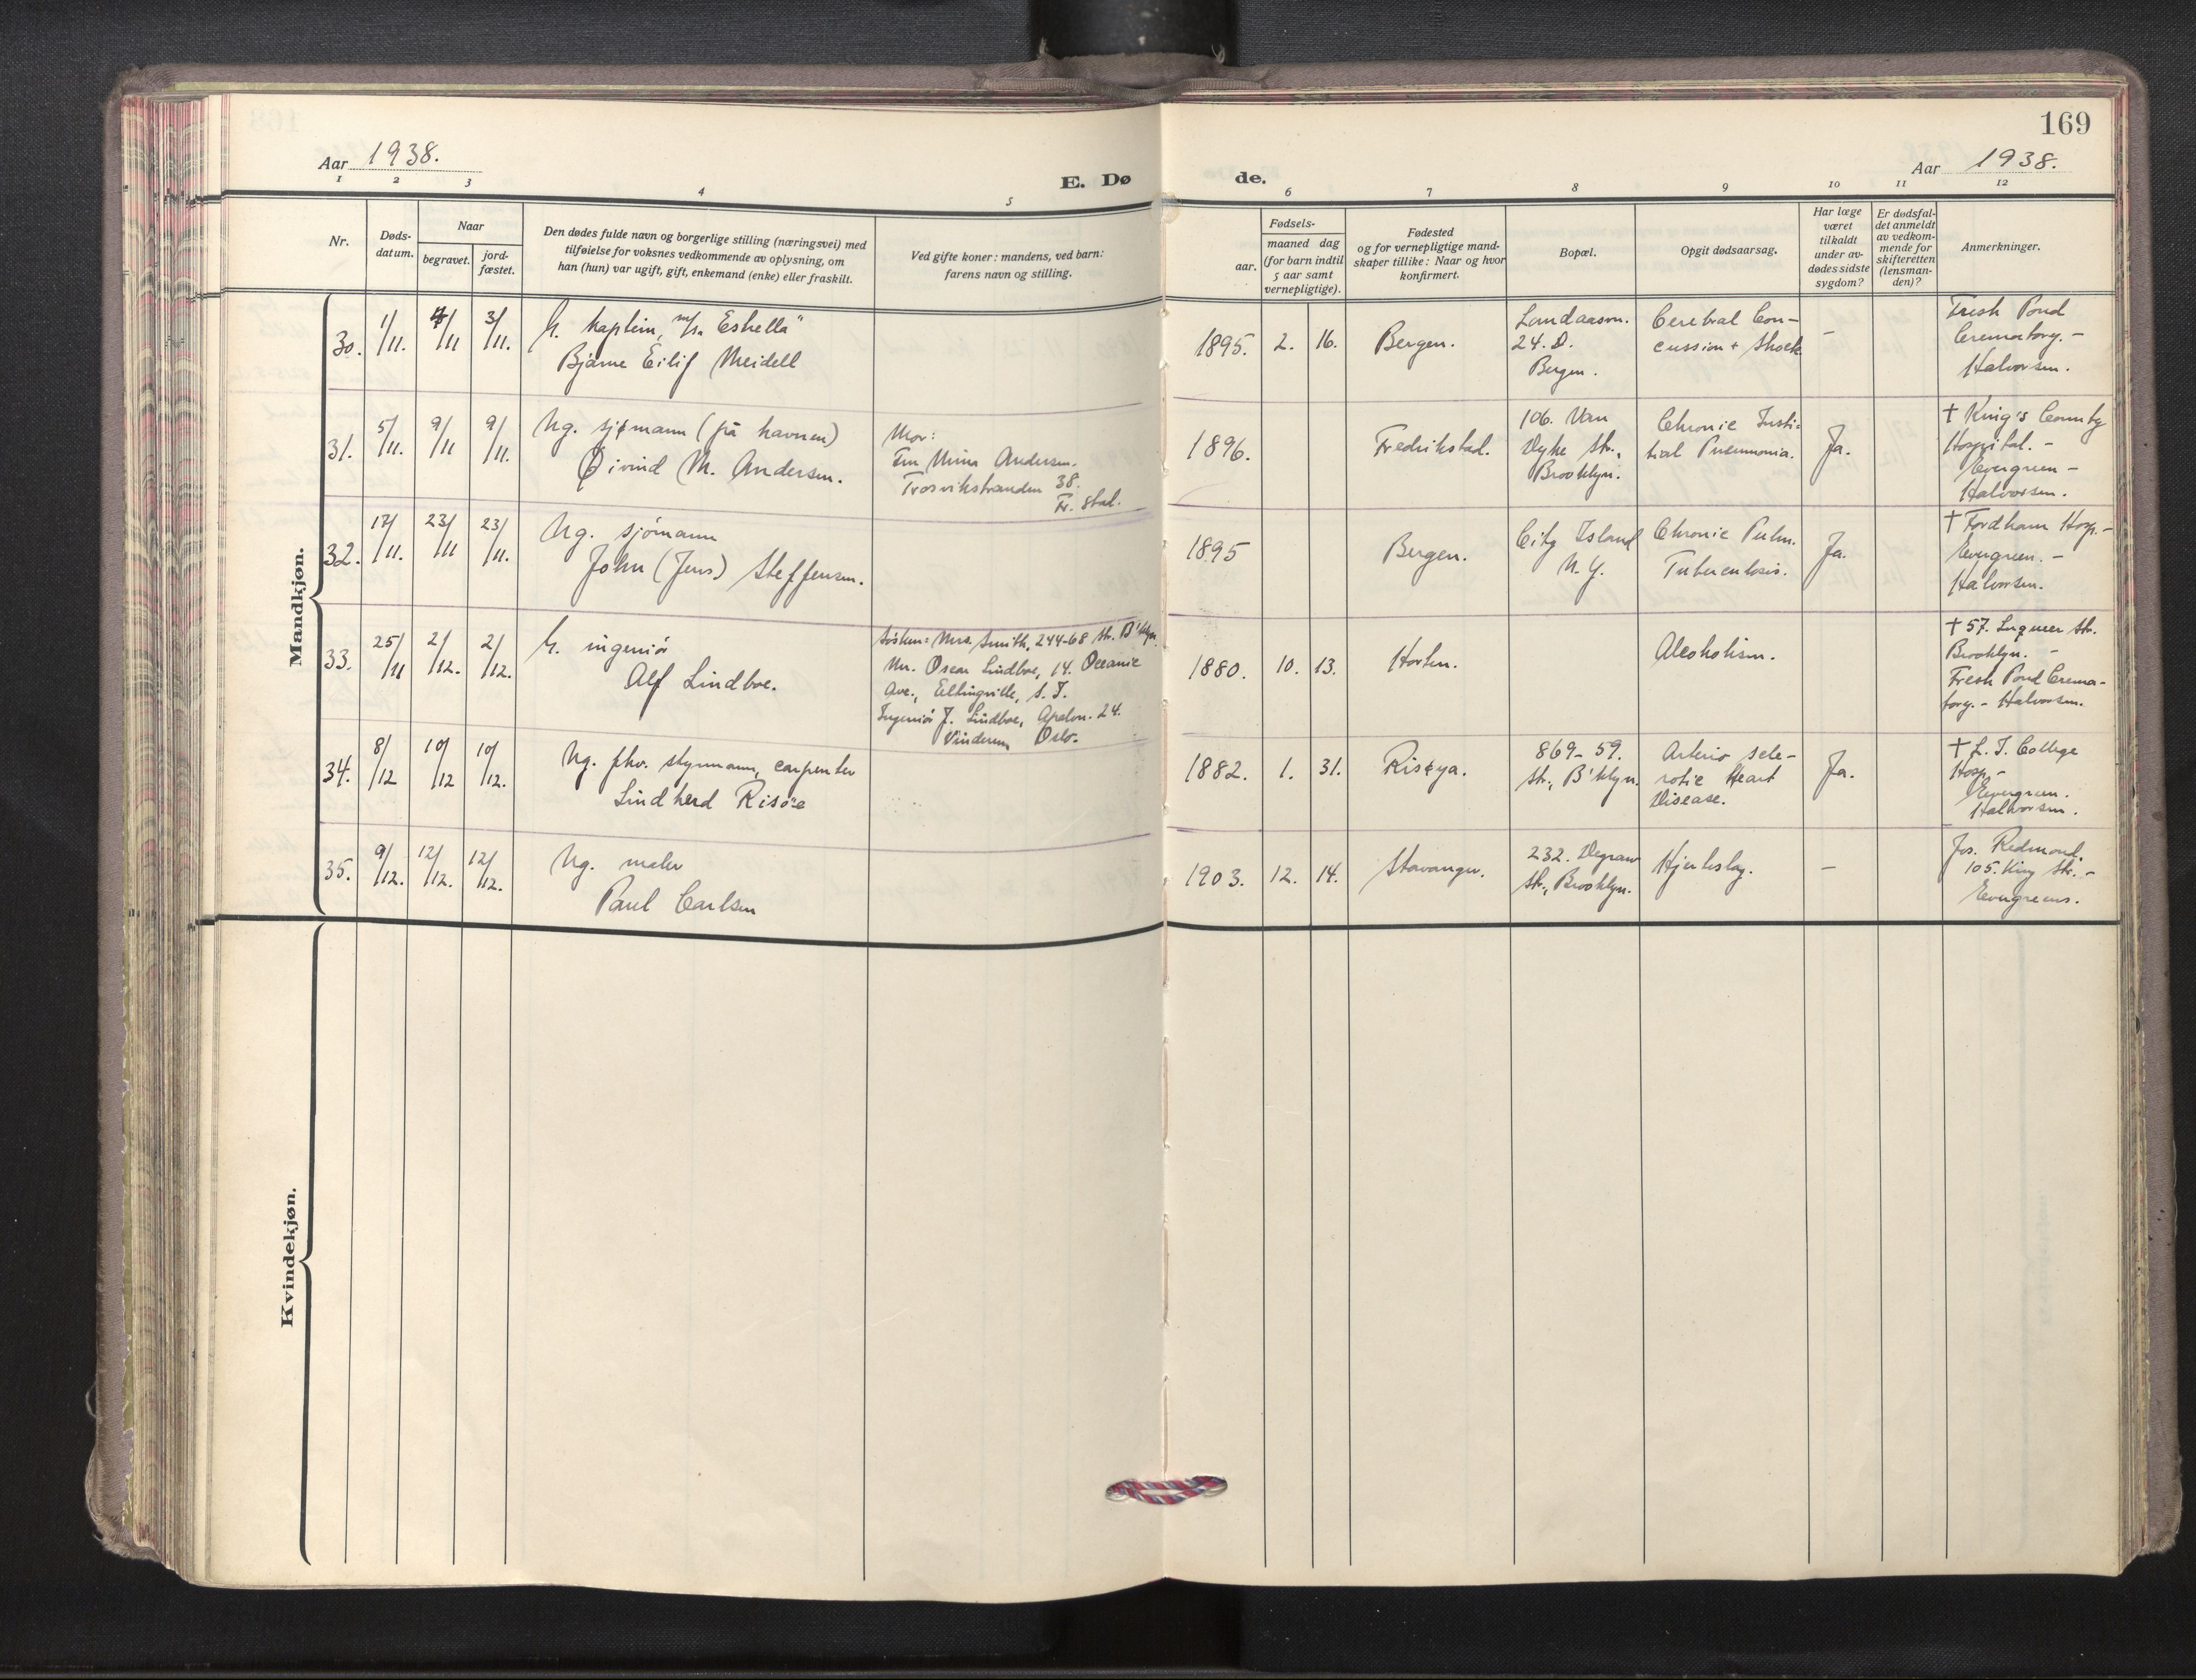 169
Aar 1938.
Aar 1938.
1 2 3 4 5 6 7 8 9 10 11 12
E. Dø de.
Nr.
Døds-
datum.
Naar
begravet.
jord-
fæstet.
Den dødes fulde navn og borgerlige stilling (næringsvei) med
tilføielse for voksnes vedkommende av oplysning, om
han (hun) var ugift, gift, enkemand (enke) eller fraskilt.
Ved gifte koner: mandens, ved barn:
farens navn og stilling.
Fødsels-
aar.
maaned dag
(for barn indtil
5 aar samt
vernepligtige).
Fødested
og for vernepligtige mand-
skaper tillike: Naar og hvor
konfirmert.
Bopæl.
Opgit dødsaarsag.
Har læge
været
tilkaldt
under av-
dødes sidste
sygdom?
Er dødsfal-
det anmeldt
av vedkom-
mende for
skifteretten
(lensman-
den)?
Anmerkninger.
Mandkjøn.
30. 1/11. 4/11 3/11.
G. kaptein, m/s. Estrella"
Bjarne Eilif Meidell
1895. 2. 16. Bergen.
Landaasvn.
24. D.
Bergen.
Cerebral Con-
cussion + Shock
–
Fresh Pond
Crematory. –
Halvorsen.
31. 5/11. 9/11 9/11.
Ug. sjømann (på havnen)
Øivind M. Andersen.
Mor:
Fru Mina Andersen.
Trosvikstranden 38.
Fr. stad.
1896. Fredrikstad.
106. Van
Dyke Str.,
Brooklyn.
Chronic Insti-
tial Pneumonia.
Ja.
† King's County
Hospital. –
Evergreen –
Halvorsen.
32. 17/11. 23/11 23/11.
Ug. sjömann
John (Jens) Steffensen.
1895 Bergen.
City Island
N.Y.
Chronic Pulm.
Tuberculosis.
Ja.
† Fordham Hosp. –
Evergreen. –
Halvorsen.
33. 25/11 2/12. 2/12.
G. ingeniör
Alf Lindboe.
Søsken: Mrs. Smith, 244-68 Str. B'klyn.
Mr. Oscar Lindboe, 14. Oceanic
Ave., Eltingville, S. I.
Ingeniör J. Lindboe, Apalvn. 24.
Vinderen Oslo.
1880. 10. 13. Horten.
Alcoholism.
† 57. Luquer Str.
Brooklyn. –
Fresh Pond Crema-
tory. – Halvorsen.
34. 8/12 10/12 10/12.
Ug. fhv. styrmann, carpenter
Lindherd Risøe
1882. 1. 31. Risøya.
869 – 59.
Str., B'klyn.
Arterio scle-
rotic Heart
Disease.
Ja.
† L. I. College
Hosp –
Evergreen.
Halvorsen.
35. 9/12. 12/12. 12/12.
Ug. maler
Paul Carlsen
1903. 12. 14. Stavanger.
232. Degraw
Str., Brooklyn.
Hjerteslag.
–
Jos. Redmond.
105. King Str. –
Evergreens.
Kvindekjøn.